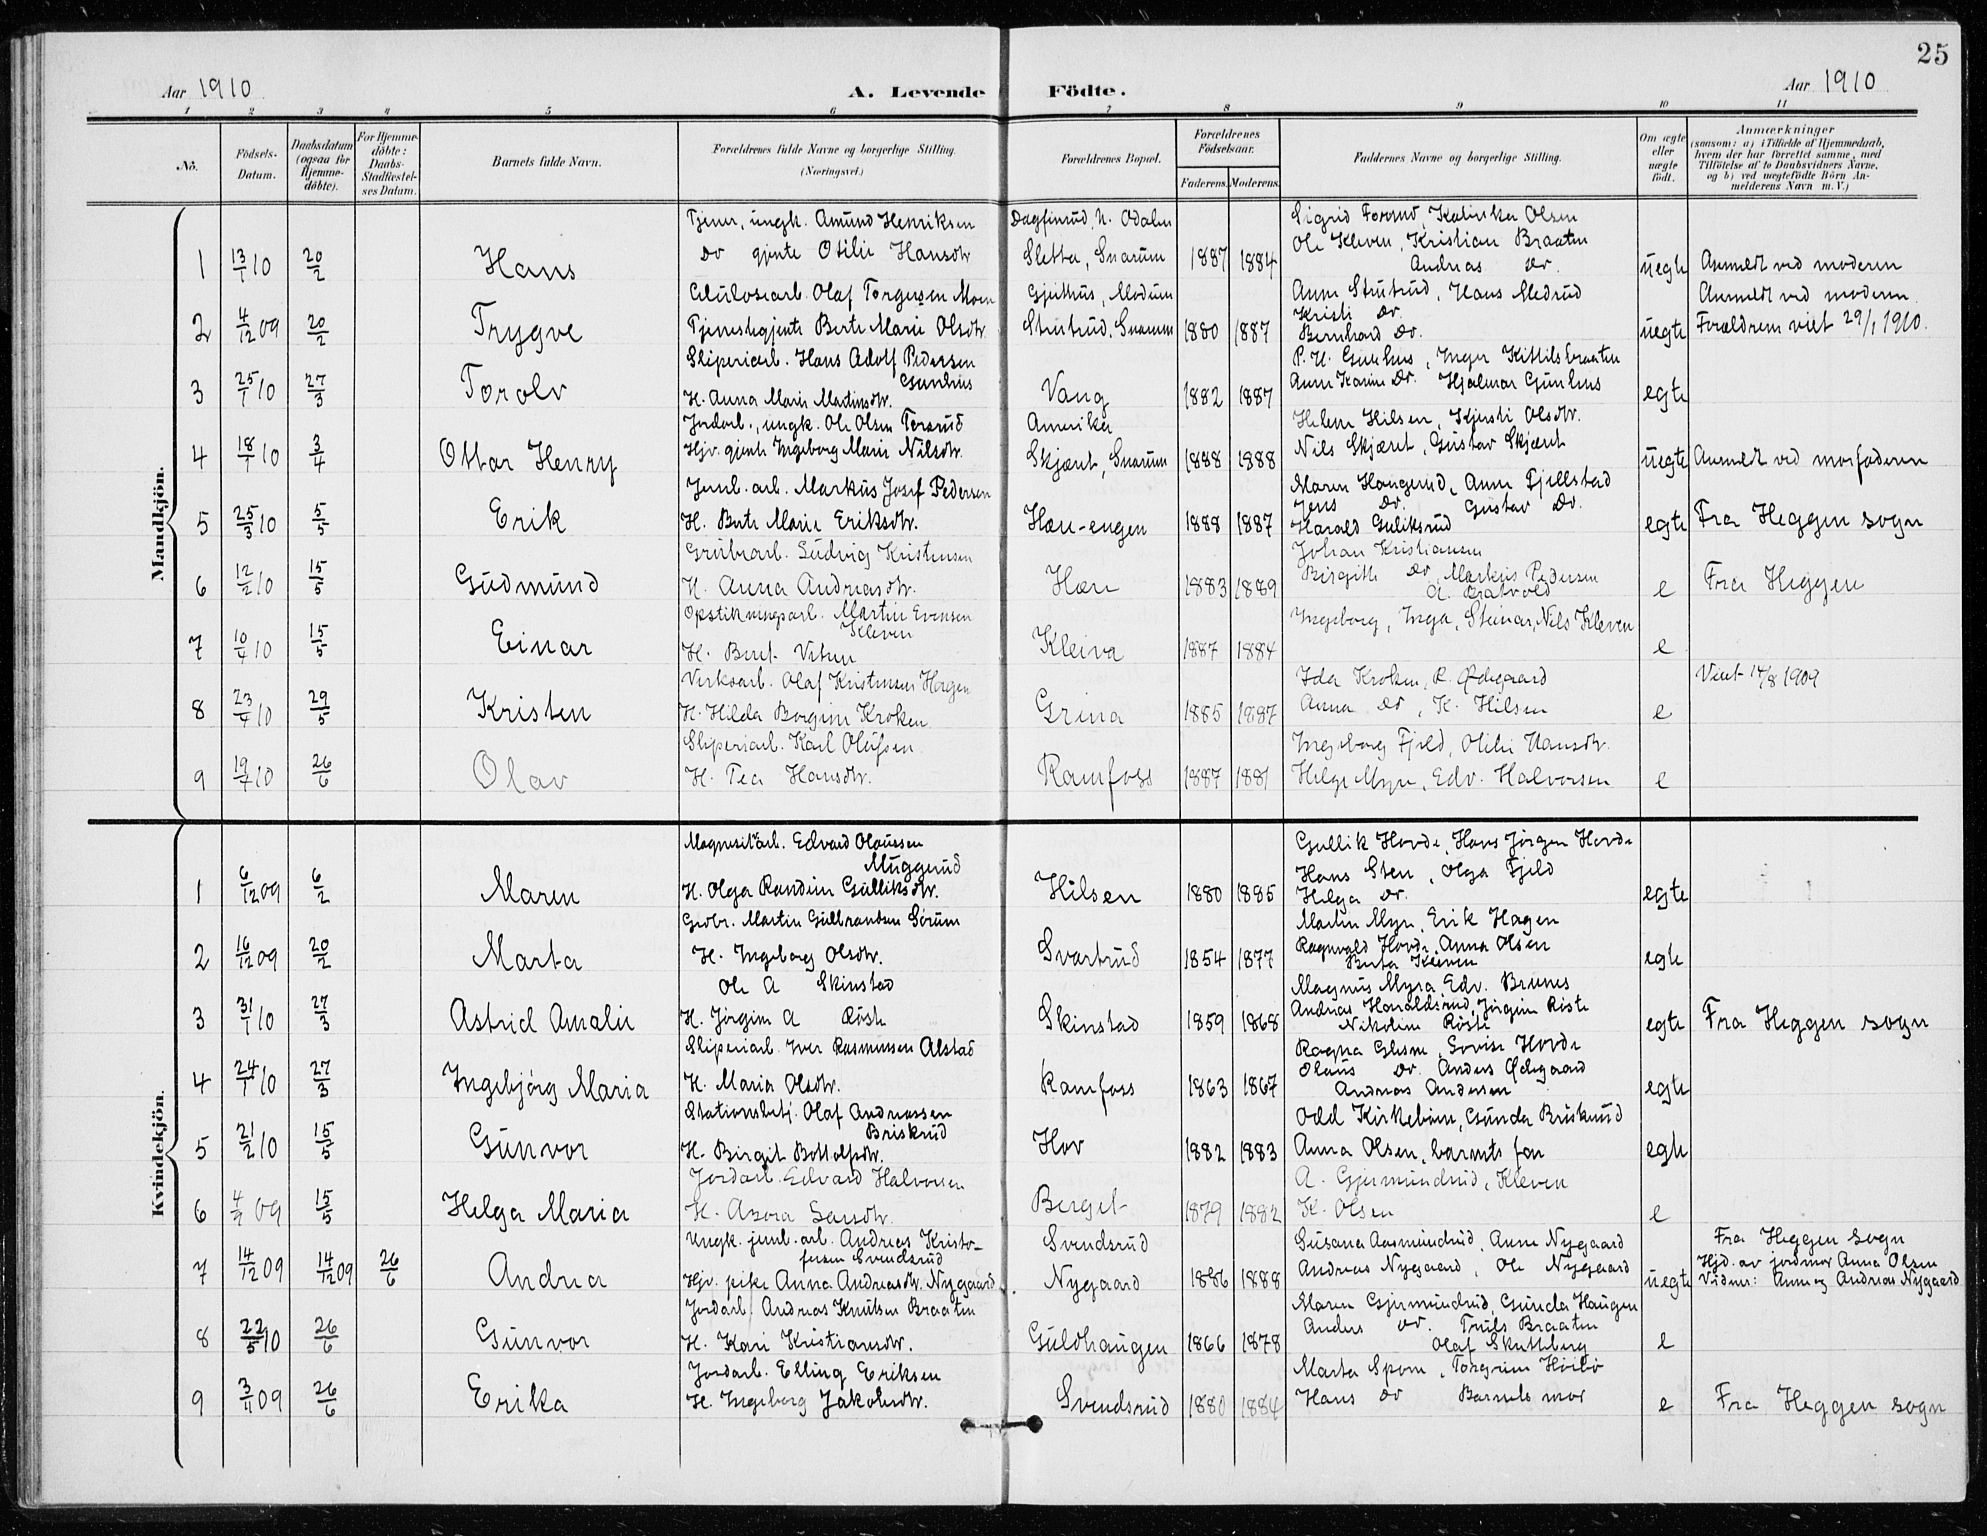 25
Aar 1910
A. Levende Födte.
Aar 1910
1 2 3 4 5 6 7 8 9 10 11
No.
Födsels-Datum.
Daabsdatum (ogsaa for Hjemme-döbte).
For Hjemme-döbte: Daabs-Stadfæstel-ses Datum.
Barnets fulde Navn.
Forældrenes fulde Navne og borgerlige Stilling. (Næringsvei.)
Forældrenes Bopæl.
Forældrenes Födselsaar.
Faderens. Moderens.
Faddernes Navne og borgerlige Stilling.
Om ægte eller uægte født.
Anmærkninger (saasom: a) i Tilfælde af Hjemmedaab, hvem der har forrettet samme, med Tilföielse af to Daabsvidners Navne, og b) ved uægtefödte Börn An-melderens Navn m. V.)
Mandkjön.
Tjener, ungk. Amund Henriksen Dagfinrud, N. Odalen Sigrid Forsrud, Kalinka Olsen
1 13/1 10 20/2 Hans Do gjente Otilie Hansdtr Sletta, Snarum 1887 1884 Ole Kleven, Kristian Braaten
Andreas Do. uegte Anmeldt ved moderen
Celulosearb. Olaf Torgersen Moen Gjethus, Modum Anne Strutrud, Hans Medrud Anmeldt ved moderen.
2 4/12 09 20/2 Trygve Tjenestegjente Berte Marie Olsdtr. Strutrud, Snarum 1880 1887 Kristi Do.
Bernhard Do. uegte Forældrene viet 29/1 1910.
Sliperiarb. Hans Adolf Pedersen Gunhus P. H. Gunhus, Inger Kittilsbraaten
3 25/1 10 27/3 Torolv H. Anna Marie Martinsdtr. Vang 1882 1887 Anne Karine Do. Hjalmar Gunhus egte
Jordarb., ungk. Ole Olsen Torsrud Amerika Helene Hilsen, Kjersti Olsdtr.
4 18/1 10 3/4 Ottar Henry Hjv. gjente Ingeborg Marie Nilsdtr. Skjæret, Snarum 1888 1888 Nils Skjæret, Gustav Skjæret uegte Anmeldt ved morfaderen
Jernb. arb. Markus Josef Pedersen Maren Haugerud, Anne Fjellstad
5 25/3 10 5/5 Erik H. Berte Marie Eriksdtr. Hæn-engen 1888 1887 Jens Do. Gustav Do.
Harald Guliksrud egte Fra Heggen sogn
Grubearb. Ludvig Kristensen Johan Kristiansen
6 12/2 10 15/5 Gudmund H. Anna Andreasdtr. Hæn 1883 1889 Birgitte Do, Markus Pedersen
A. Bratvold e Fra Heggen
Opstikningsarb. Martin Evensen Kleven Ingeborg, Inga, Steinar, Nils Kleven
7 10/4 10 15/5 Einar H. Berit Kleiva 1887 1884 e
Verksarb. Olaf Kristensen Hagen Ida Kroken, R. Ødegaard Viet 14/8 1909
8 23/4 10 29/5 Kristen H. Hilda Borgine Kroken Grina 1885 1887 Anna Do, K. Hilsen e
Sliperiarb. Karl Olufsen Ingeborg Fjeld, Otilie Hansdtr.
9 19/4 10 26/6 Olav H. Tea Hansdtr. Ramfoss 1887 1881 Helge Myre, Edv. Halvorsen e
Kvindekjön.
Magnesitarb. Edvard Olaussen Muggerud Gullik Hovde, Hans Jörgen Hovde
1 6/12 09 6/2 Maren H. Olga Randine Gulliksdtr. Hilsen 1880 1885 Hans Sten, Olga Fjeld
Helga Do. egte
Grdbr. Martin Gulbrandsen Sörum Martin Myre, Erik Hagen
2 16/12 09 20/2 Marta H. Ingeborg Olsdtr. Svartrud 1854 1877 Ragnvald Hovde, Anna Olsen
Berta Kleven egte
Ole A Skinstad Magnus Myra Edv. Brunes
3 31/1 10 27/3 Astrid Amalie H. Jörgine A Röste Skinstad 1859 1868 Andreas Haraldsrud, Jörgine Röste
Nikoline Röste egte Fra Heggen sogn
Sliperiarb. Iver Rasmussen Alstad Ragna Glesne, Lovise Hovde
4 24/1 10 27/3 Ingebjörg Maria H. Maria Olsdtr. Ramfoss 1863 1867 Olaus Do. Anders Ødegaard
Andreas Andersen egte
Stationsbetj. Olaf Andreassen Briskrud Odd Kirkebøen, Gunda Briskerud
5 21/2 10 15/5 Gunvor H. Birgit Bottolfsdtr. Hov 1882 1883 Anna Olsen, barnets far egte
Jordarb. Edvard Halvorsen A. Gjermundrud, Kleven
6 09 15/5 Helga Maria H. Asora Larsdtr. Berget 1879 1882 K. Olsen e
Ungk. jernb. arb. Andreas Kristo-fersen Svendsrud Svendsrud Susana Aasmundrud, Anne Nygaard Fra Heggen sogn
7 14/12 09 14/12 09 26/6 Andrea Hjv. pike Anna Andreasdtr. Nygaard. Nygaard 1886 1888 Andreas Nygaard, Ole Nygaard uegte Hjd. av jordmor Anna Olsen
Vidner: Anne og Andreas Nygaard
Jordarb. Andreas Knutsen Braaten Maren Gjermundrud, Gunda Haugen
8 22/5 10 26/6 Gunvor H. Kari Kristiansdtr. Guldhaugen 1866 1878 Anders Do. Truls Braaten
Olaf Skuttberg e
Jordarb. Elling Eriksen Marta Sporn, Torgrim Höibö
9 3/11 09 26/6 Erika H. Ingeborg Jakobsdtr. Svendsrud 1880 1884 Hans Do Barnets mor e Fra Heggen sogn